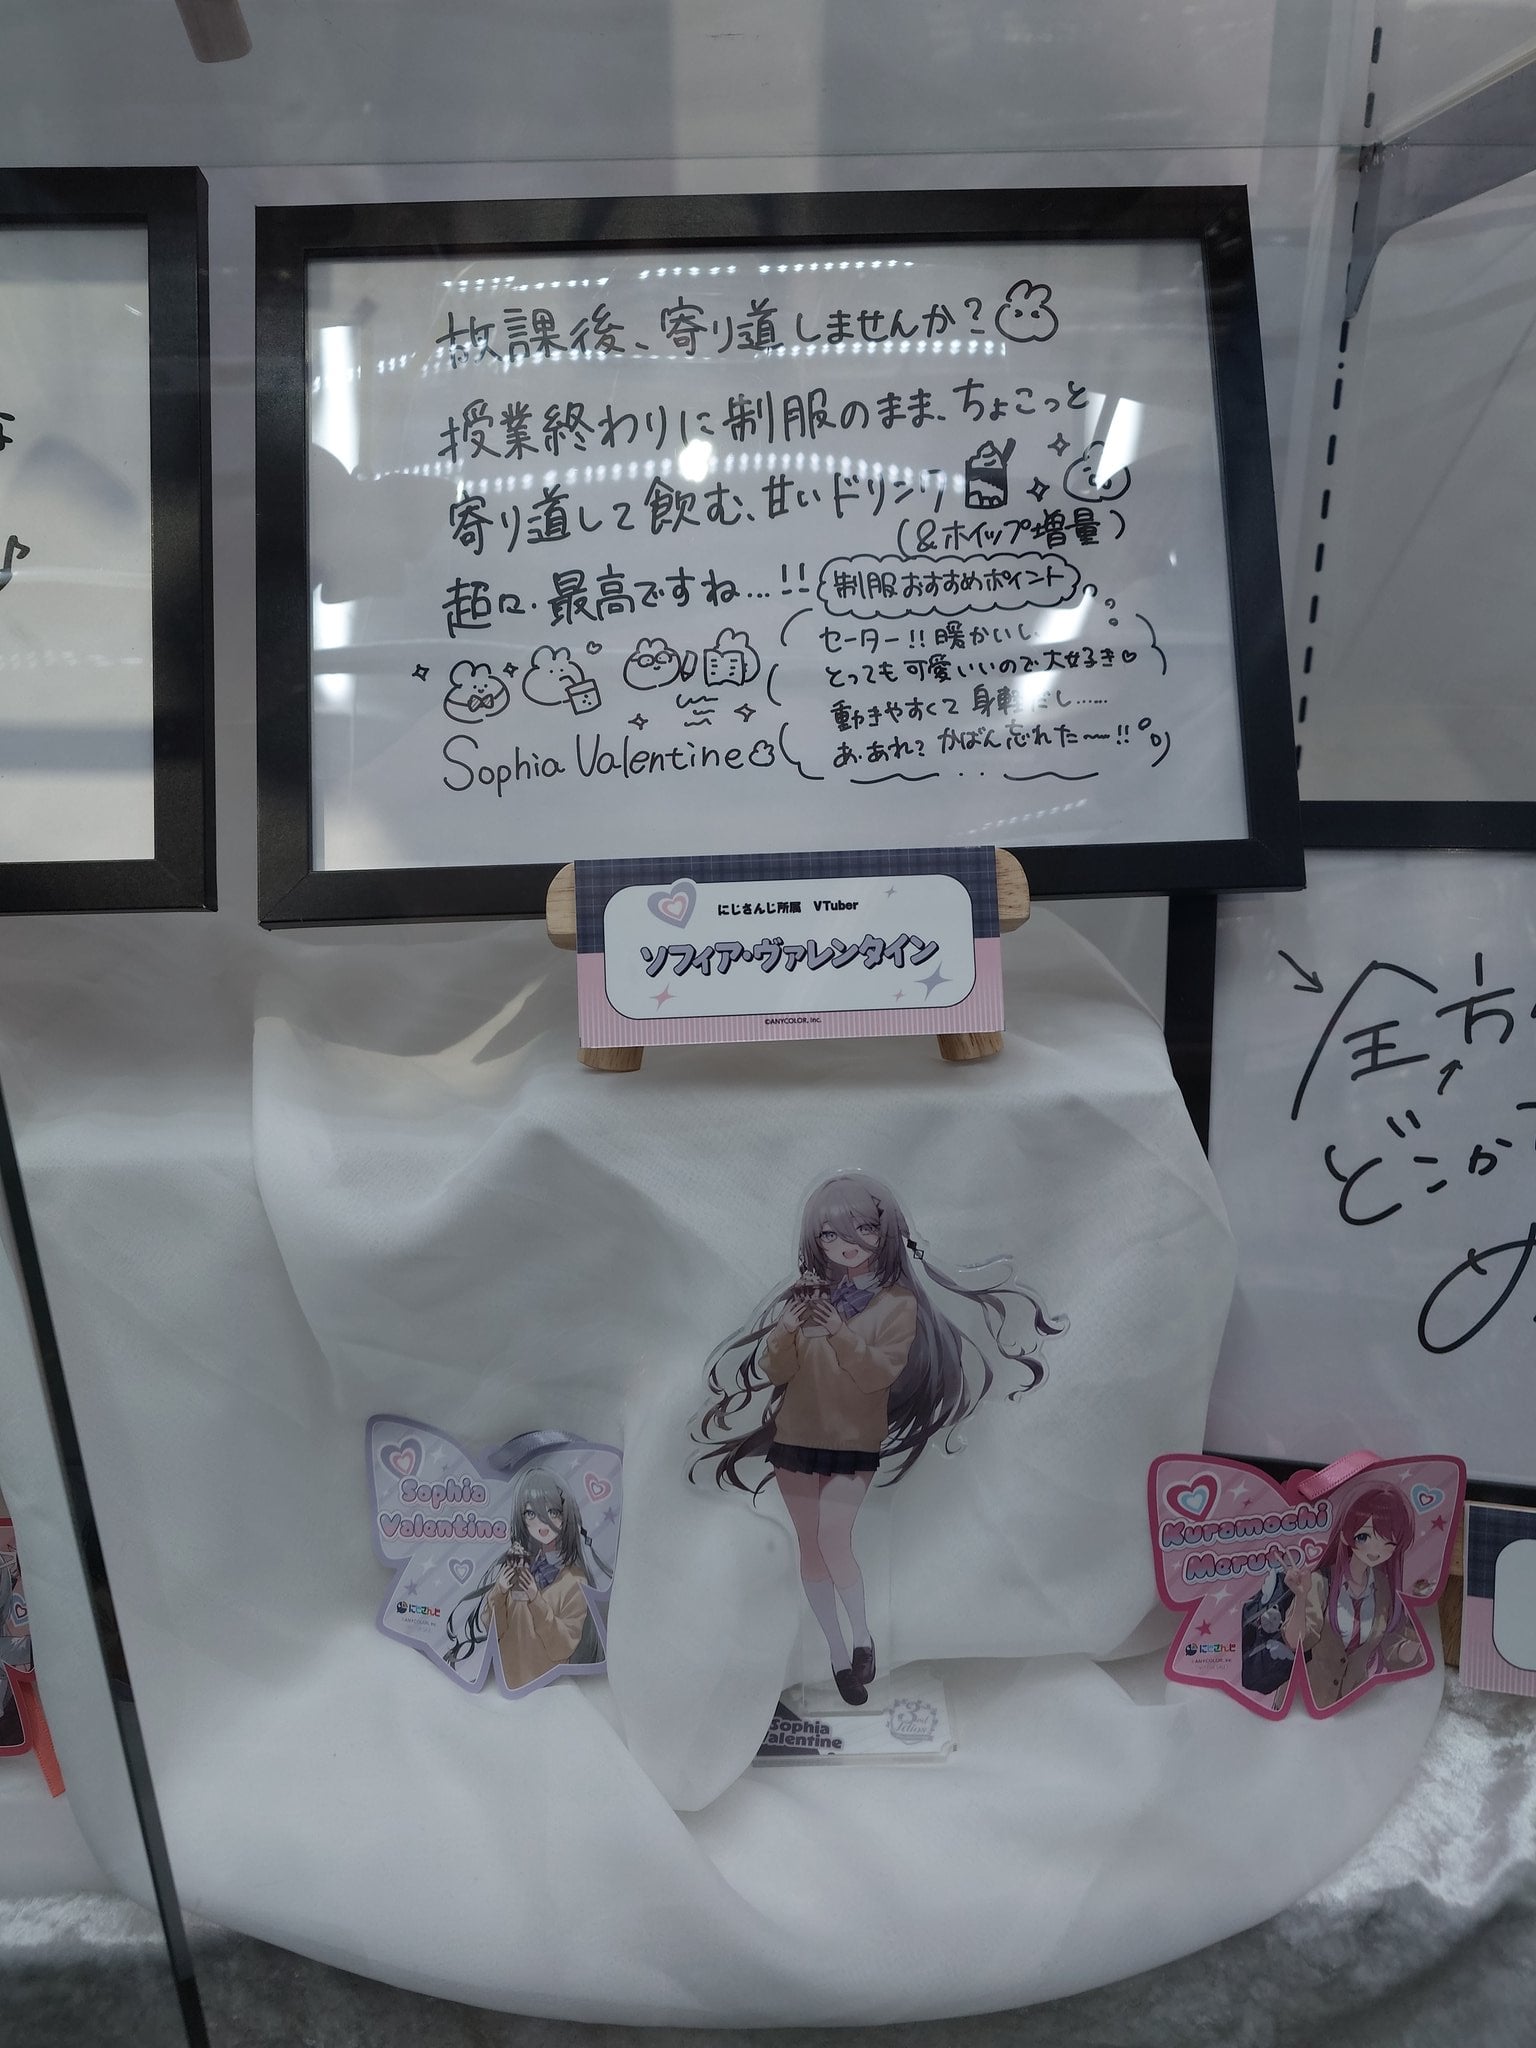 放課後、寄り道しませんか?
授業終わりに制服のまま、ちょこっと
寄り道して飲む、甘いドリンク
(&ホイップ増量)
超口、最高ですね...!!
制服おすすめポイント
セーター!!暖かいし、
とっても可愛いいので大好き♡
動きやすくて身軽だし……
あ、あれ?かばん忘れた〜!!
Sophia Valentine
にじさんじ所属 VTuber
ソフィア・ヴァレンタイン
©ANYCOLOR, Inc.
全方
どこか
Sophia
Valentine
にじさんじ
©ANYCOLOR, Inc.
Sophia
Valentine
3rd
Kuramochi
Meruto
にじさんじ
©ANYCOLOR, Inc.